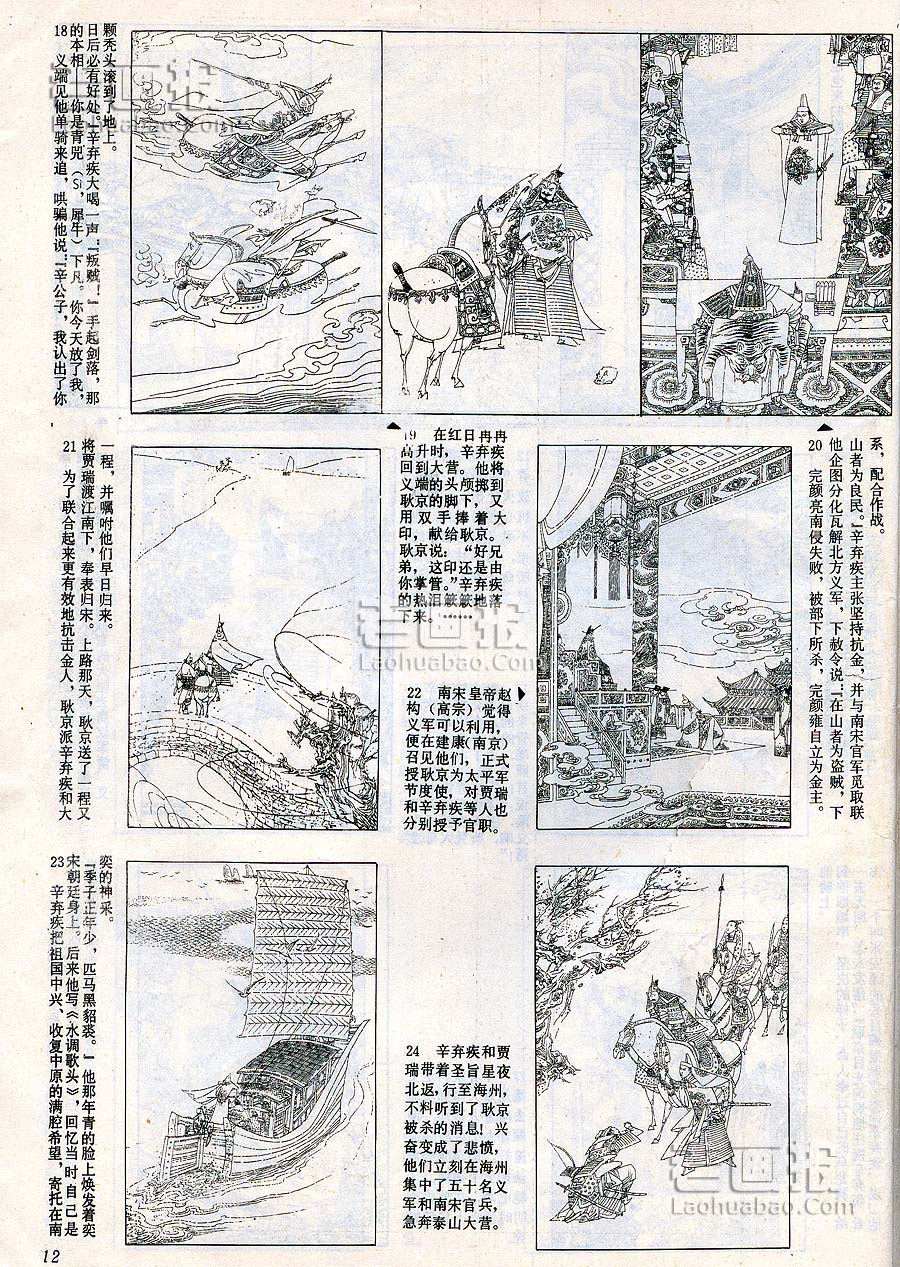 18　义端见他单骑来追，哄骗他说：『辛公子，我认出了你
的本相，你是青兕（Sì，犀牛）下凡。你今天放了我，
日后必有好处。』辛弃疾大喝一声：『叛贼！』手起剑落，那
颗秃头滚到了地上。
19　在红日冉冉
高升时，辛弃疾
回到大营。他将
义端的头颅掷到
耿京的脚下，又
用双手捧着大
印，献给耿京。
耿京说：“好兄
弟，这印还是由
你掌管。”辛弃疾
的热泪簌簌地落
下来。……
20　完颜亮南侵失败，被部下所杀，完颜雍自立为金主。
他企图分化瓦解北方义军，下赦令说：『在山者为盗贼，下
山者为良民。』辛弃疾主张坚持抗金，并与南宋官军觅取联
系，配合作战。
21　为了联合起来更有效地抗击金人，耿京派辛弃疾和大
将贾瑞渡江南下，奉表归宋。上路那天，耿京送了一程又
一程，并嘱咐他们早日归来。
22　南宋皇帝赵
构（高宗）觉得
义军可以利用，
便在建康（南京）
召见他们，正式
授耿京为太平军
节度使，对贾瑞
和辛弃疾等人也
分别授予官职。
23　辛弃疾把祖国中兴、收复中原的满腔希望，寄托在南
宋朝廷身上。后来他写《水调歌头》，回忆当时自己是
『季子正年少，匹马黑貂裘。』他那年青的脸上焕发着奕
奕的神采。
24　辛弃疾和贾
瑞带着圣旨星夜
北返，行至海州，
不料听到了耿京
被杀的消息！兴
奋变成了悲愤，
他们立刻在海州
集中了五十名义
军和南宋官兵，
急奔泰山大营。
12
老画报
Laohuabao.Com
老画报
Laohuabao.Com
老画报
Laohuabao.Com